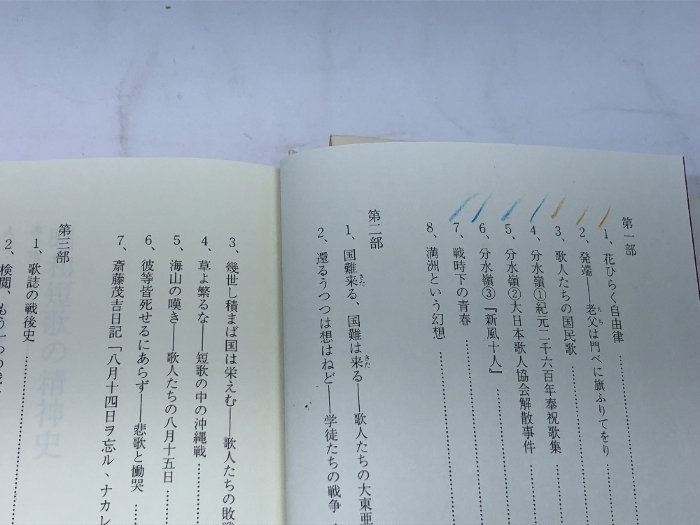 第一部
1、花ひらく自由律
2、発端――老父は門べに旗ふりてをり
3、歌人たちの国民歌
4、分水嶺①紀元二千六百年奉祝歌集
5、分水嶺②大日本歌人協会解散事件
6、分水嶺③『新風十人』
7、戦時下の青春
8、満洲という幻想
第二部
1、国難来る、国難は来る――歌人たちの大東亜
2、還るうつつは想はねど――学徒たちの戦争
3、幾世し積まば国は栄えむ――歌人たちの敗戦
4、草よ繁るな――短歌の中の沖縄戦
5、海山の嘆き――歌人たちの八月十五日
6、彼等皆死せるにあらず――悲歌と慟哭
7、斎藤茂吉日記「八月十四日ヲ忘ル、ナカレ
第三部
1、歌誌の戦後史
2、検閲、もう一つの戦